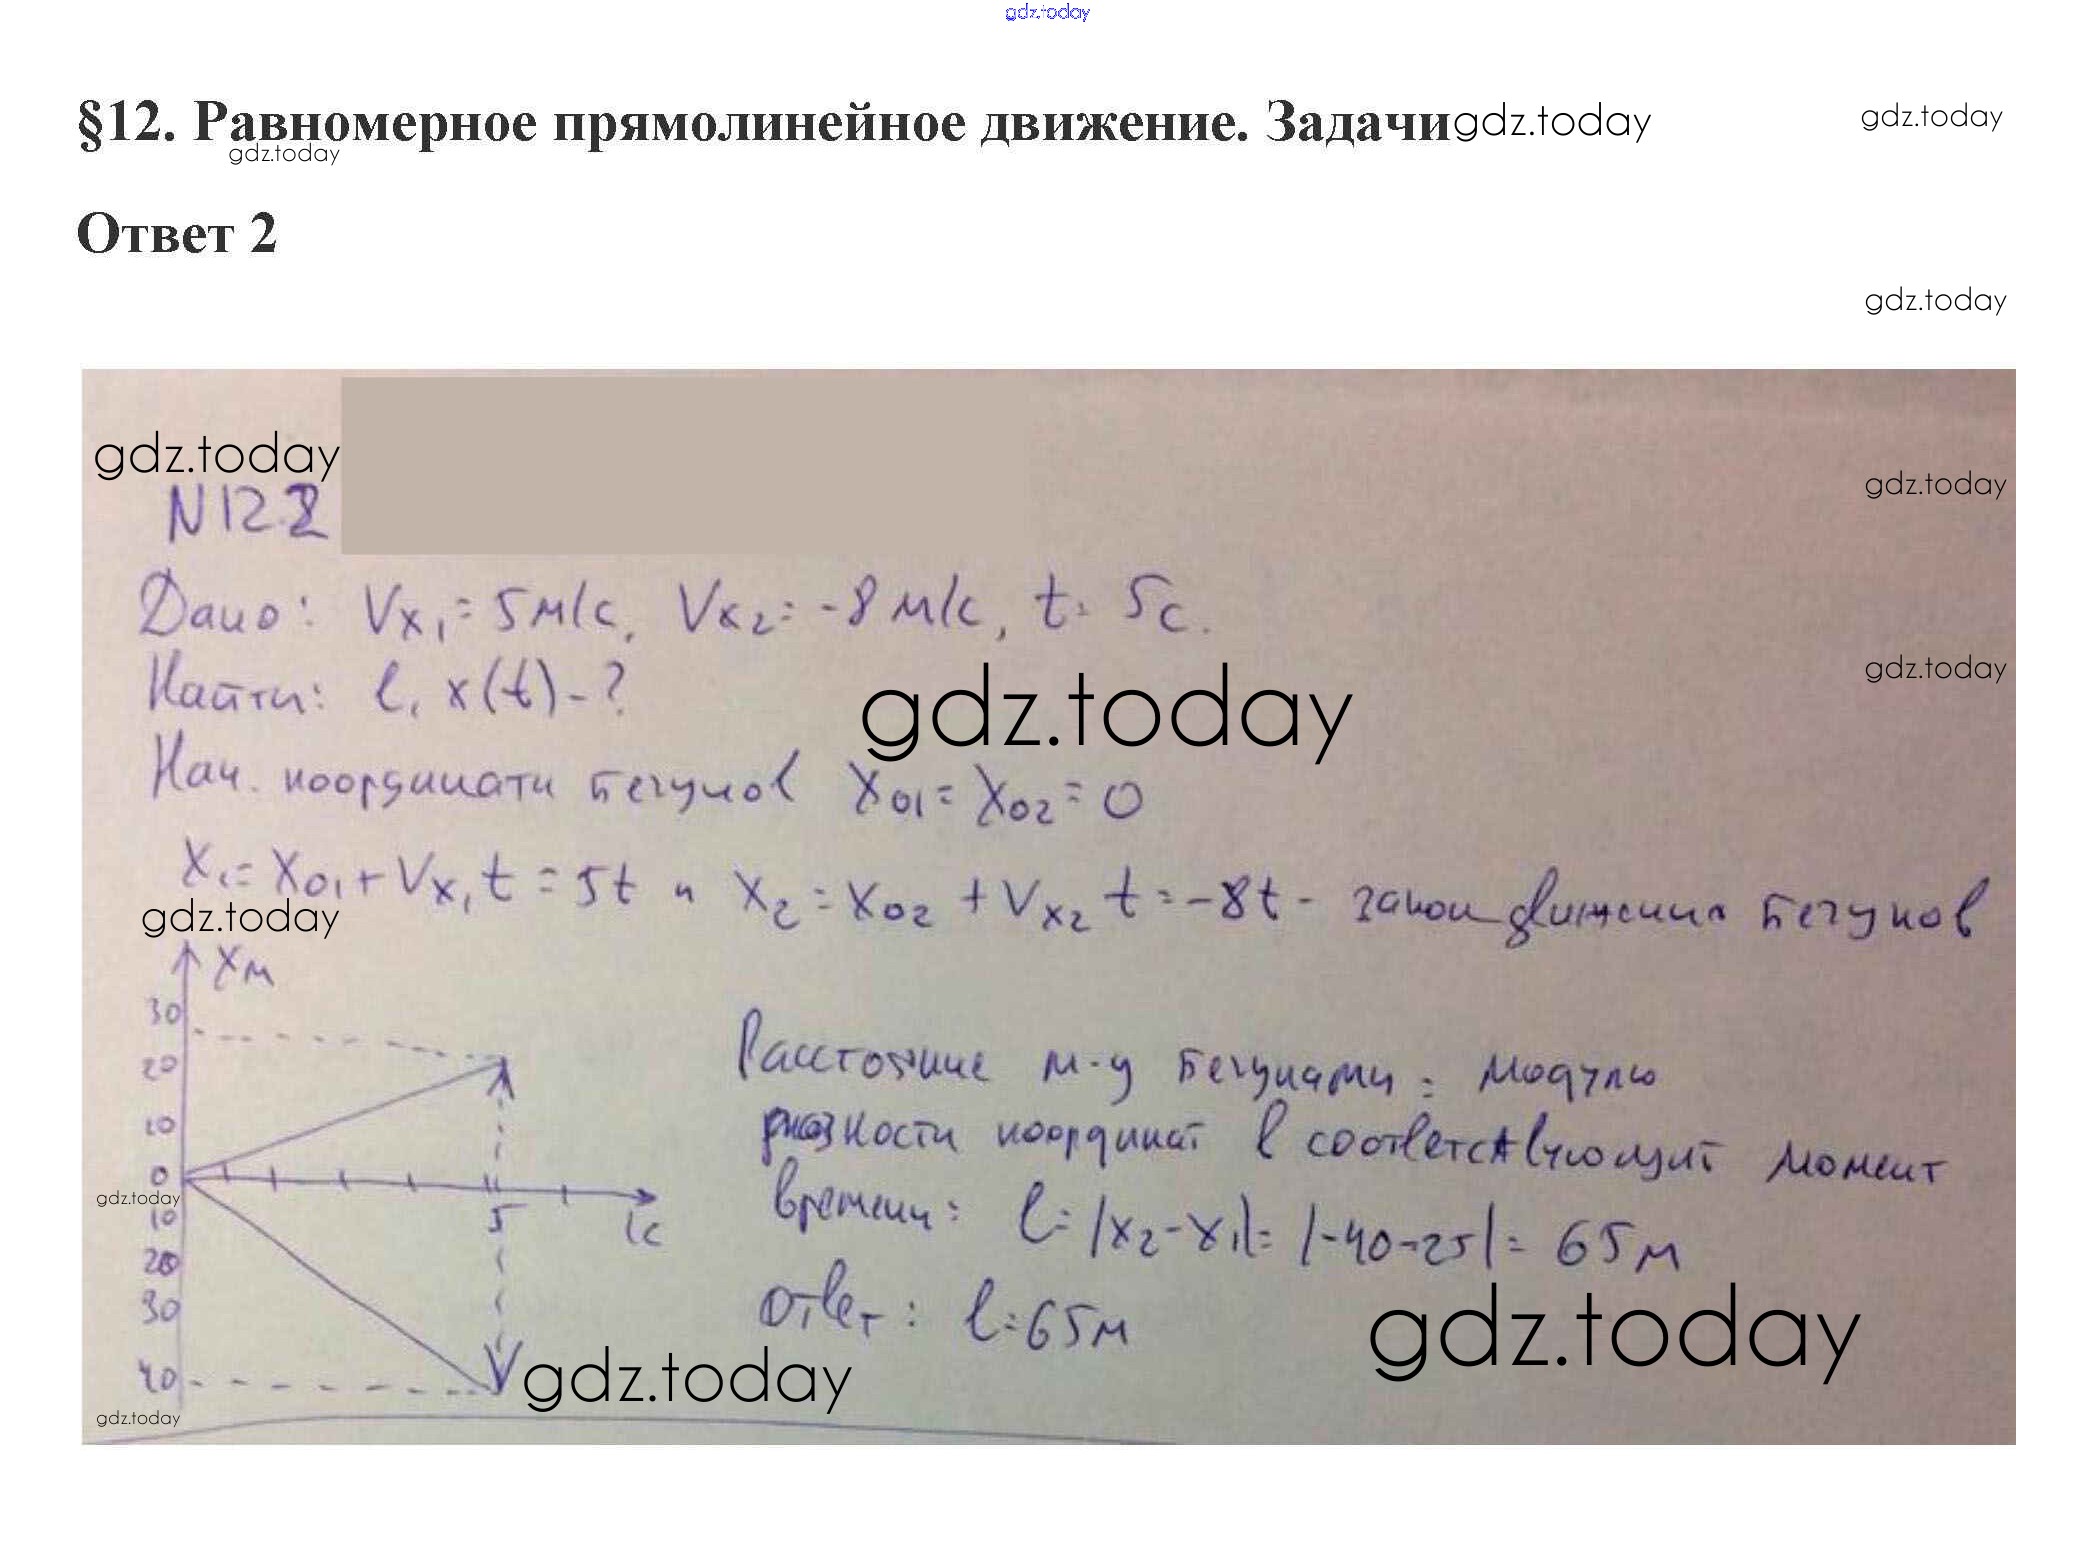 gdz.today
§12. Равномерное прямолинейное движение. Задачи gdz.today gdz.today
gdz.today
Ответ 2
gdz.today
gdz.today
gdz.today
N 12.2
Дано: Vx₁ = 5 м/с, Vx₂ = -8 м/с, t = 5с.
gdz.today
Найти: l, x(t) - ?
gdz.today
Нач. координати бегунов X₀₁ = X₀₂ = 0
X₁ = X₀₁ + Vx₁t = 5t и X₂ = X₀₂ + Vx₂ t = -8t - закон движения бегунов
gdz.today
Xм
30
20
10
0
10
20
30
40
5
tc
Расстояние м-у бегунами = модулю
разности координат в соответствующий момент
времени: l = |x₂ - x₁| = |-40-25| = 65 м
Ответ: l = 65м
gdz.today
gdz.today
gdz.today
gdz.today